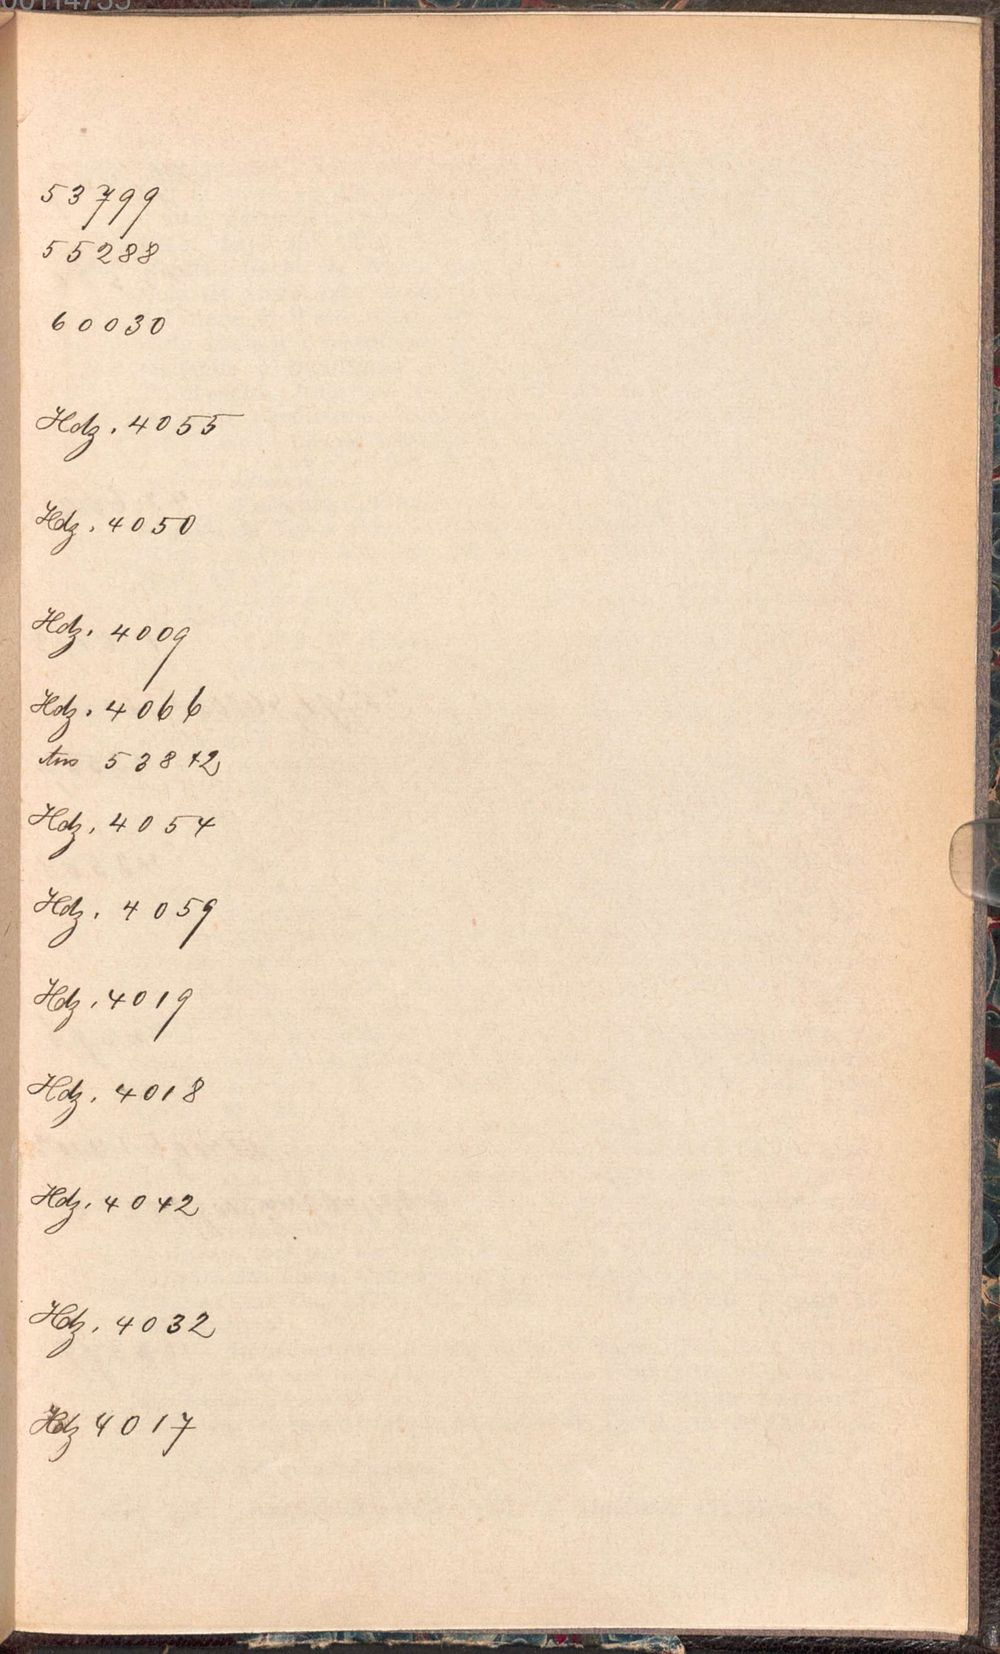 53799
55288
60030
Hdz. 4055
Hdz. 4050
Hdz. 4009
Hdz. 4066
aus 53842
Hdz. 4054
Hdz. 4059
Hdz. 4019
Hdz. 4018
Hdz. 4042
Hdz. 4032
Hdz 4017